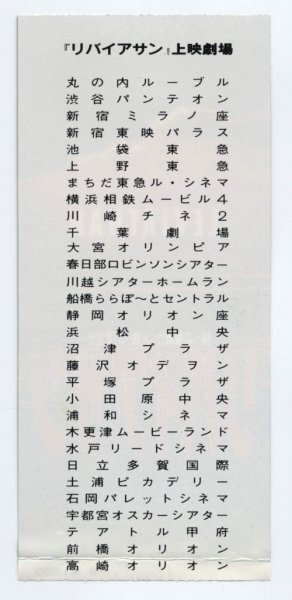 『リバイアサン』上映劇場
丸の内ルーブル
渋谷パンテオン
新宿ミラノ座
新宿東映パラス
池袋東急
上野東急
まちだ東急ル・シネマ
横浜相鉄ムービル4
川崎チネ2
千葉劇場
大宮オリンピア
春日部ロビンソンシアター
川越シアターホームラン
船橋ららぽ〜とセントラル
静岡オリオン座
浜松中央
沼津プラザ
藤沢オデヲン
平塚プラザ
小田原中央
浦和シネマ
木更津ムービーランド
水戸リードシネマ
日立多賀国際
土浦ピカデリー
石岡パレットシネマ
宇都宮オスカーシアター
テアトル甲府
前橋オリオン
高崎オリオン